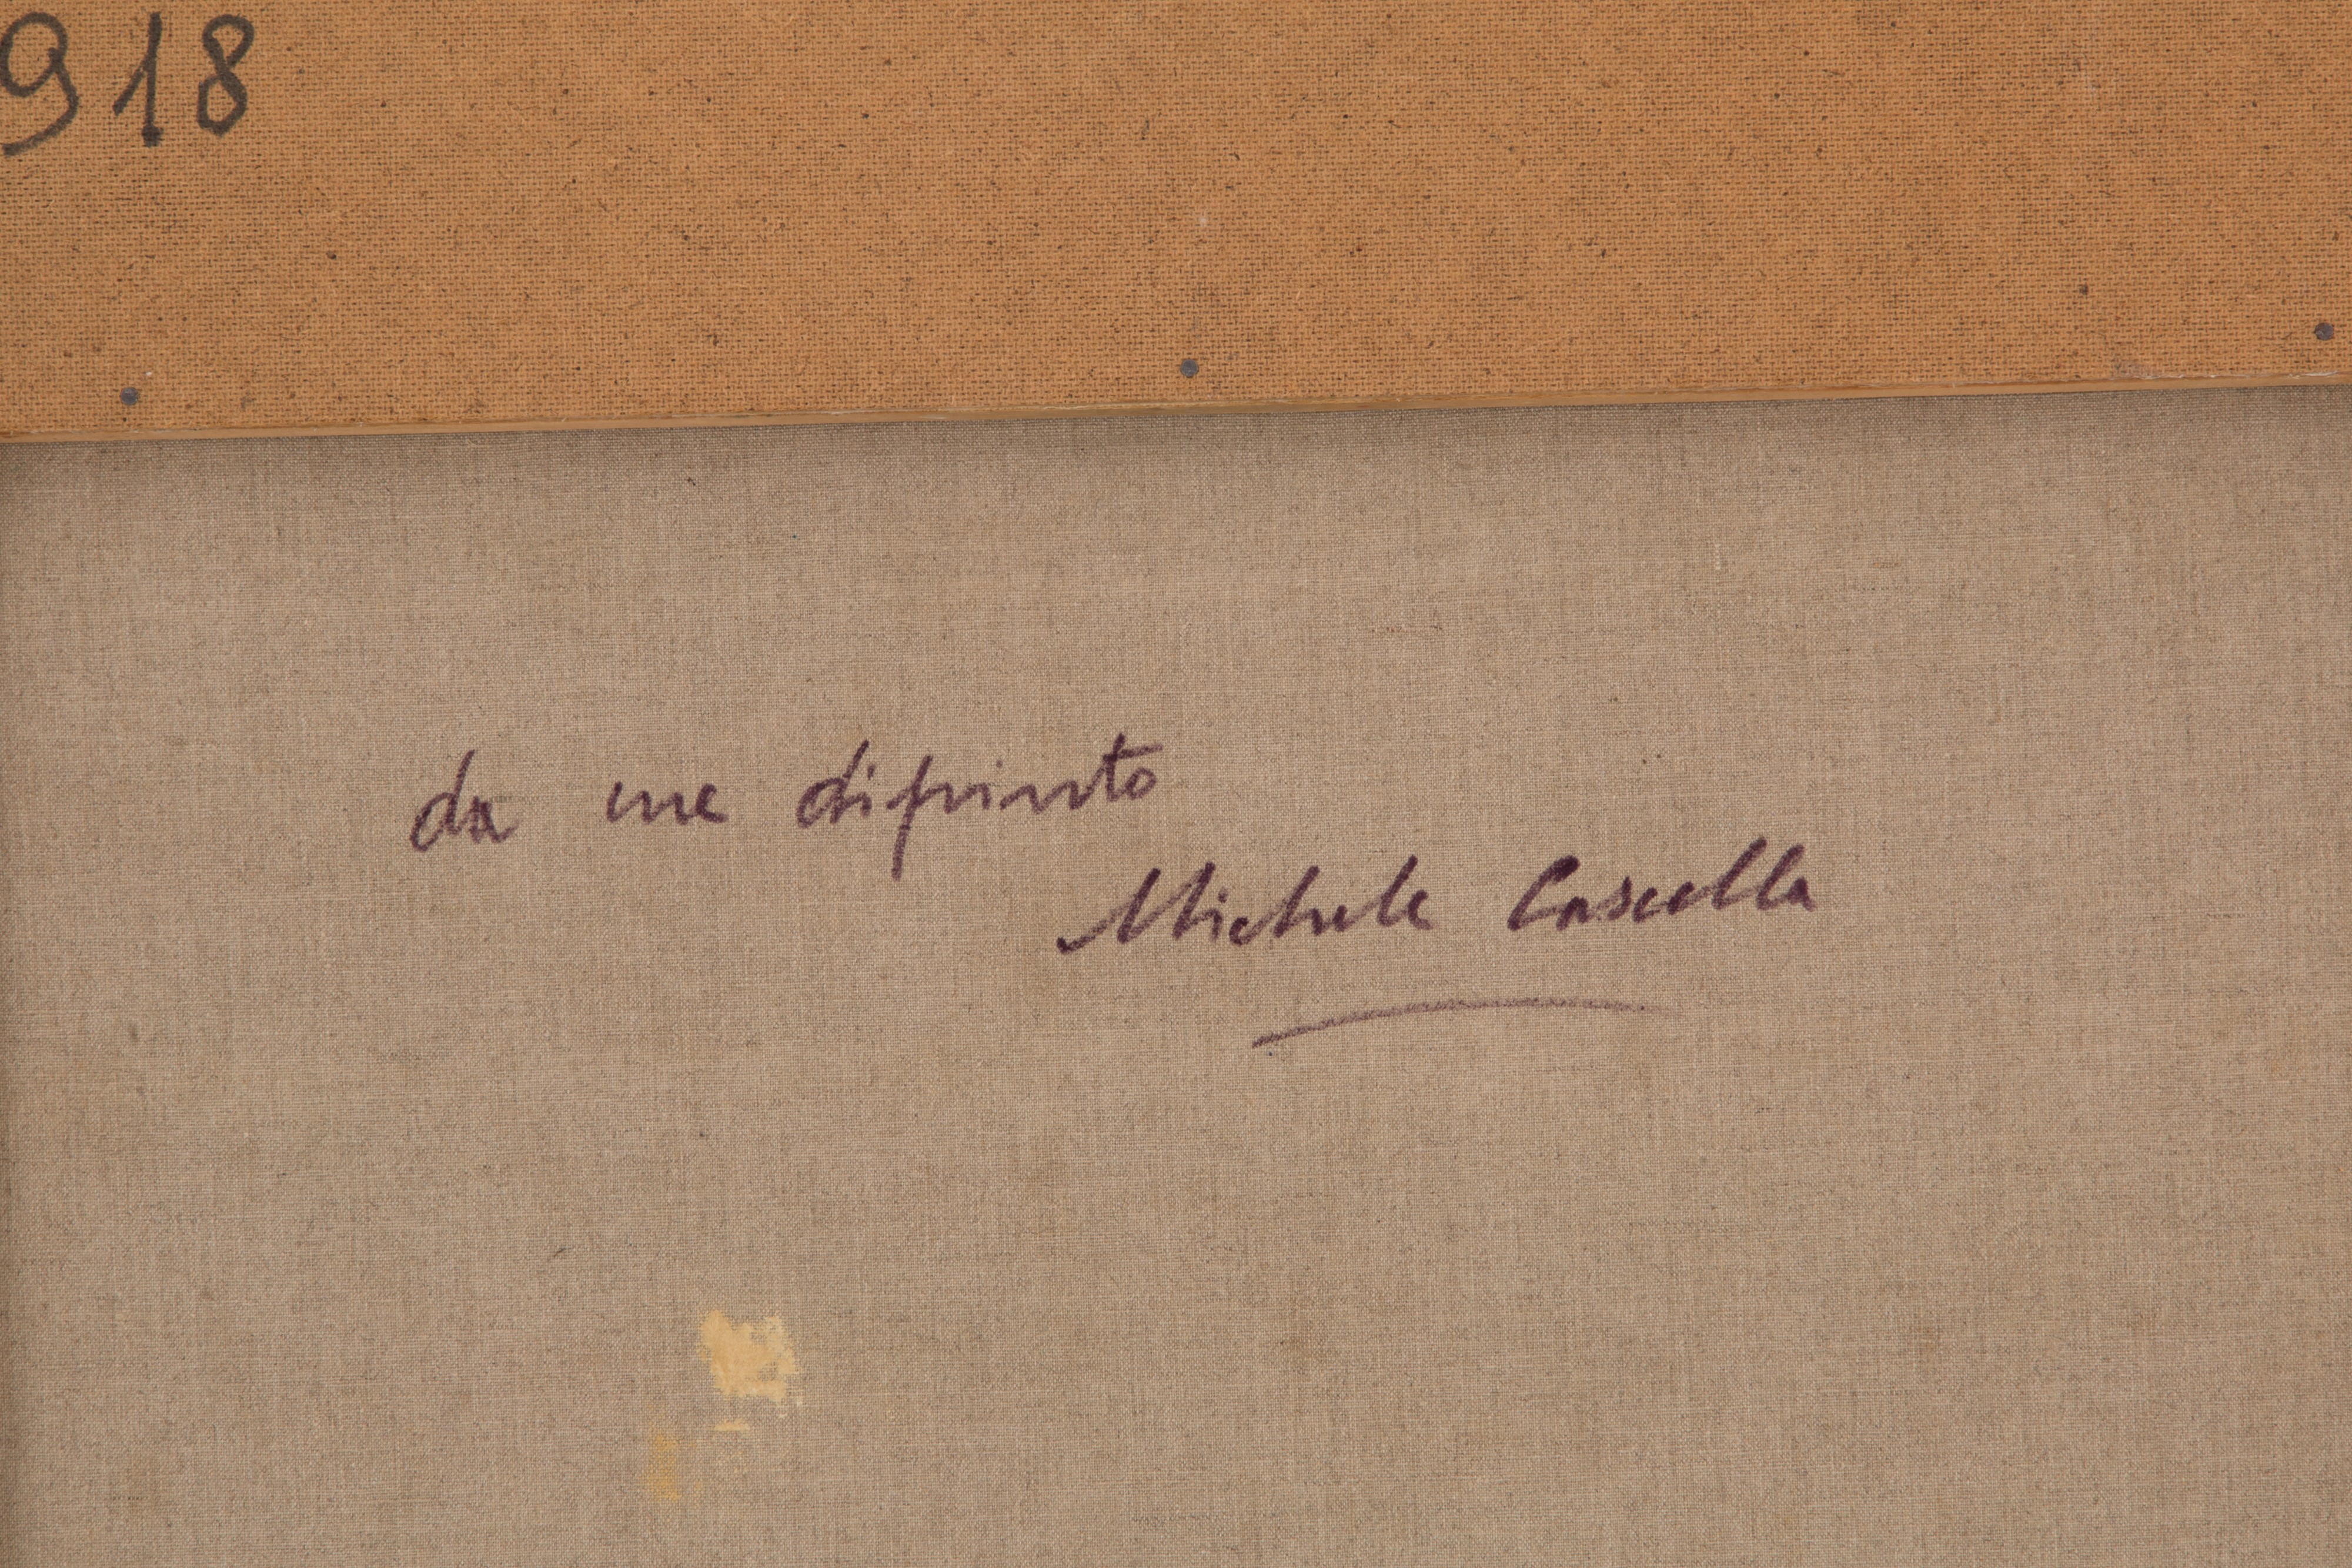 918
da me dipinto
Michele Cascella